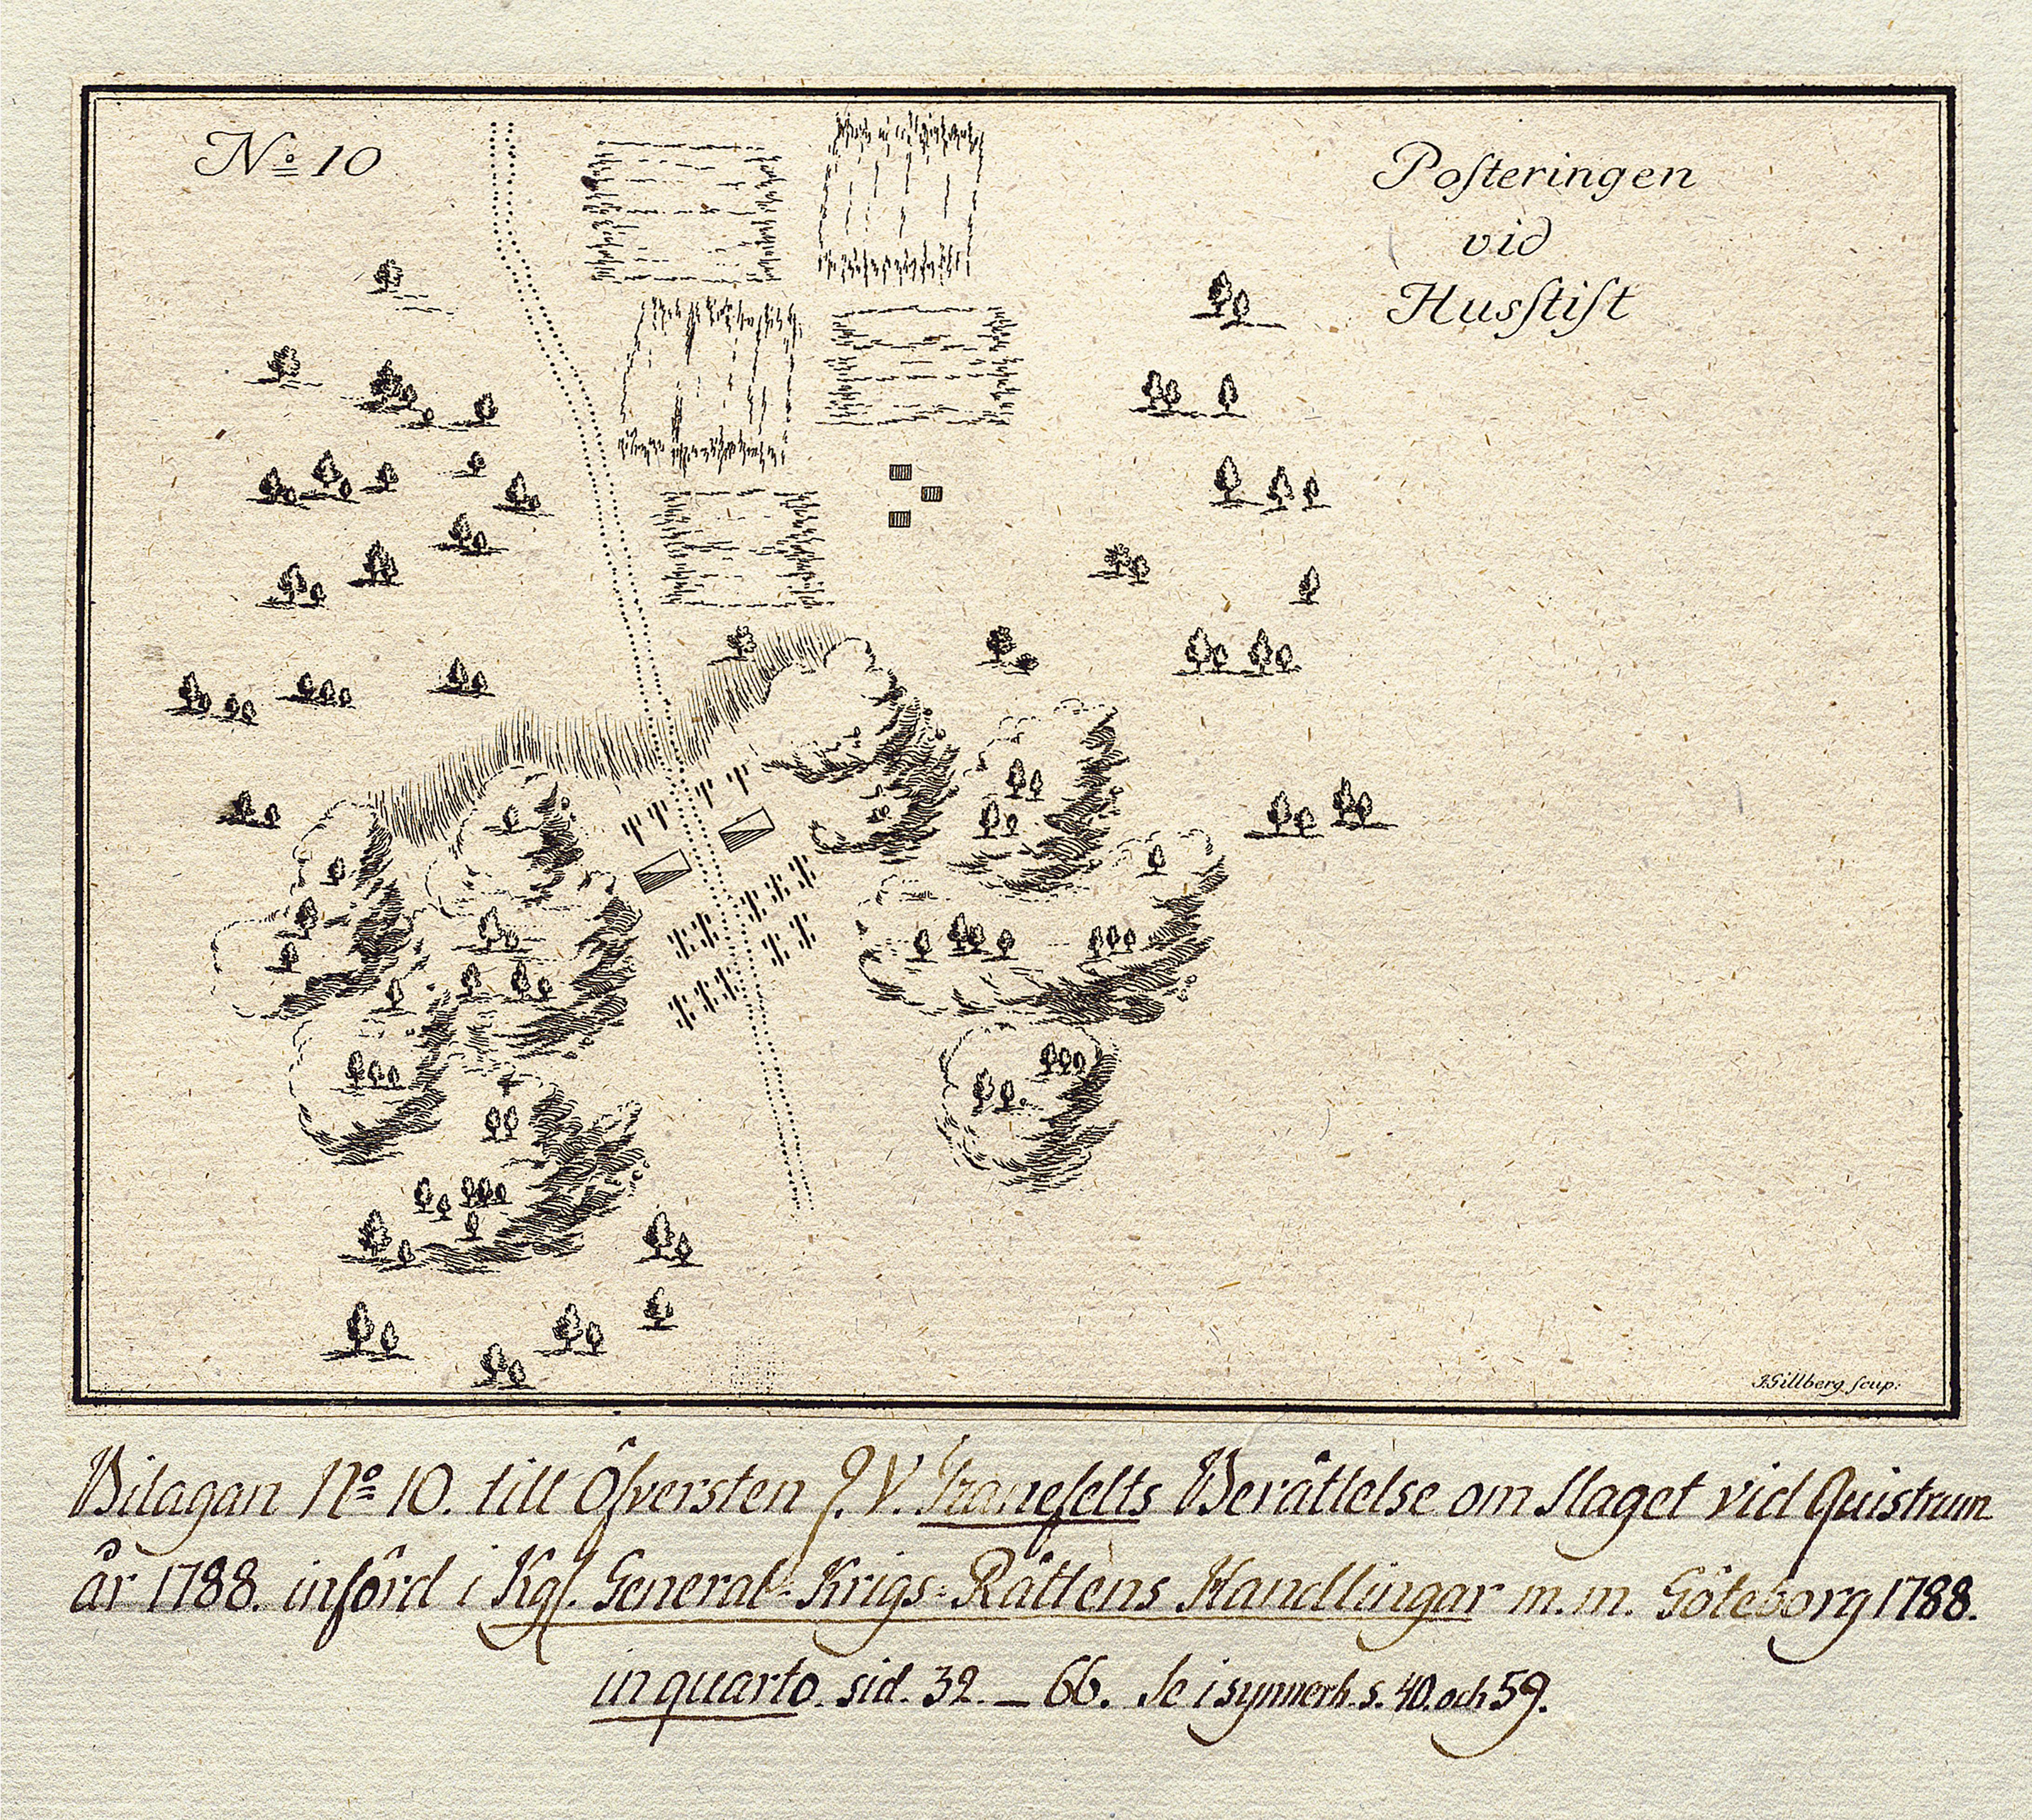 No 10
Poſteringen
vid
Husſtiſt
J.Gillberg ſculp:
Bilagan No 10. till Öfversten J. V. Tranefelts Berättelse om slaget vid Quistrum
år 1788. införd i Kgl. General-Krigs-Rättens Handlingar m.m. Göteborg 1788.
in quarto. sid. 32. – 66. Se i synnerh. s. 40. och 59.